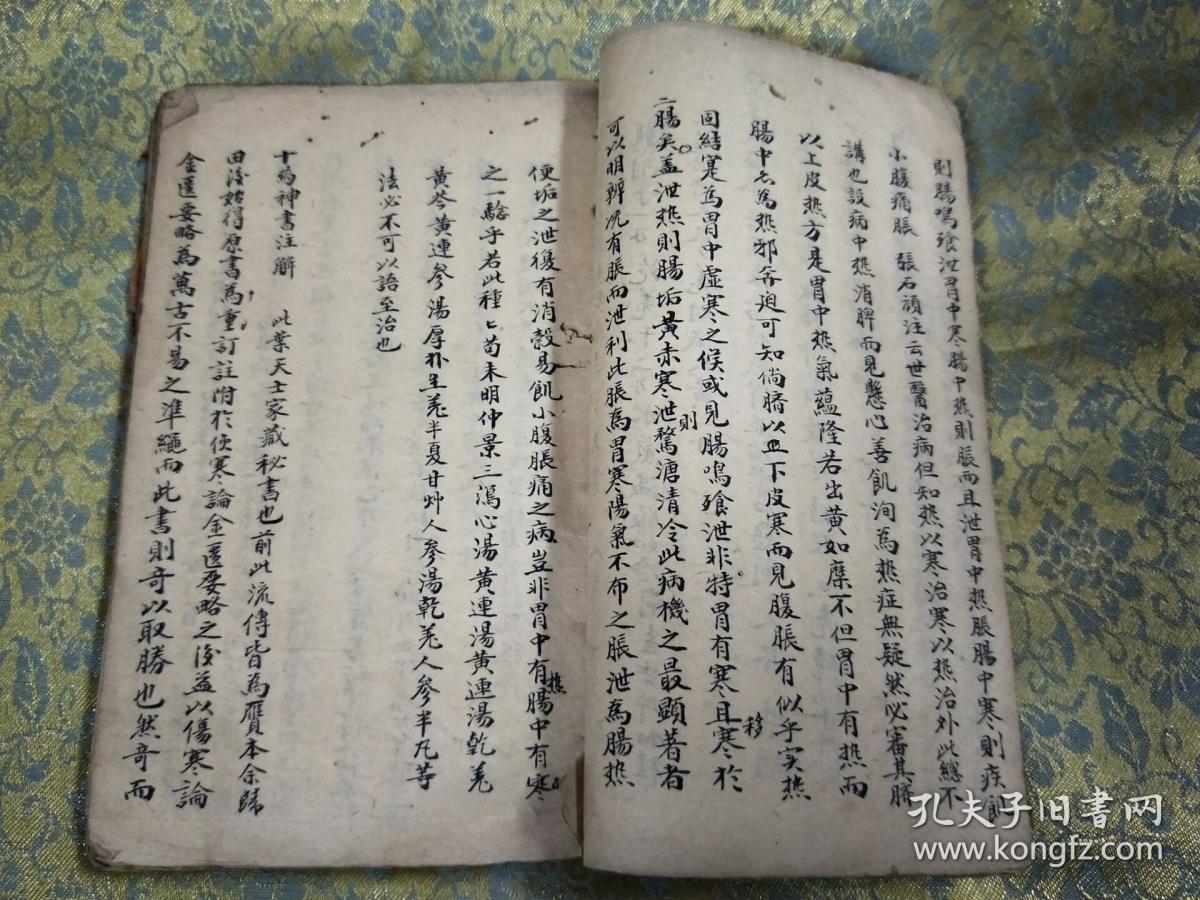 則腸鳴飱泄胃中寒腸中熱則脹而且泄胃中熱脹腸中寒則疾飢
小腹痛脹 張石頑注云世醫治病但知熱以寒治寒以熱治外此總不
講也設病中熱消脾而見懸心善飢洵為熱症無疑然必審其臍
以上皮熱方是胃中熱氣蘊隆若出黃如糜不但胃中有熱而
腸中亦為熱邪奔迫可知倘臍以且下皮寒而見腹脹有似乎実熱
固結寔為胃中虛寒之候或見腸鳴飱泄非特胃有寒且寒移於
二腸矣蓋泄熱則腸垢黃赤寒泄則騖溏清冷此病機之最顯著者
可以明辨况有脹而泄利此脹為胃寒陽氣不布之脹泄為腸熱
便垢之泄復有消穀易飢小腹脹痛之病豈非胃中有熱腸中有寒
之一騐乎若此種匕苟未明仲景三瀉心湯黃連湯黃連湯乾羌
黃芩黃連參湯厚朴生羌半夏甘艸人參湯乾羌人參半凡等
法必不可以語至治也
十药神書注解 此葉天士家藏秘書也前此流傳皆為贋本余歸
田後始得原書為重訂註附於傷寒論金匱要略之後益以傷寒論
金匱要略為萬古不易之準繩而此書則奇以取勝也然奇而
孔夫子旧书网
www.kongfz.com